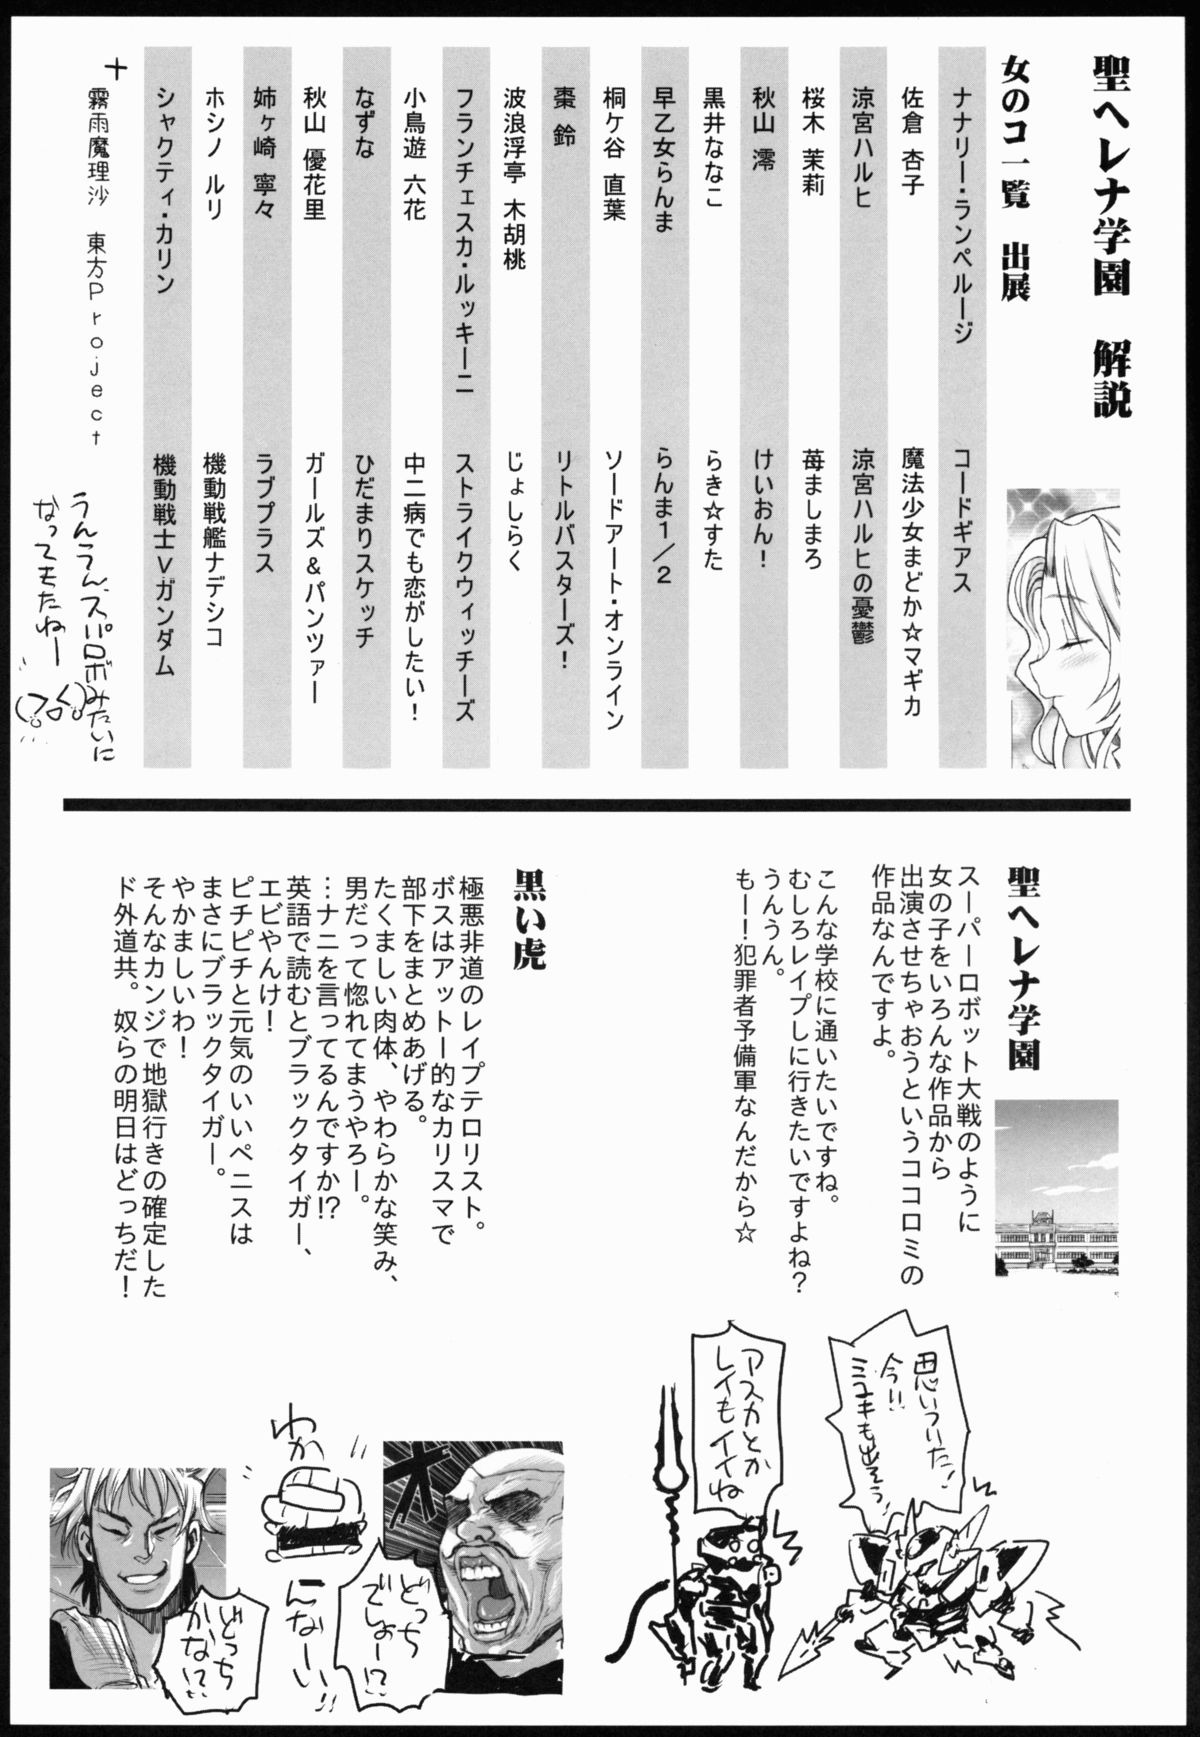 聖ヘレナ学園 解説
女のコ一覧 出展
ナナリー・ランペルージ コードギアス
佐倉 杏子 魔法少女まどか☆マギカ
涼宮ハルヒ 涼宮ハルヒの憂鬱
桜木 茉莉 苺ましまろ
秋山 澪 けいおん!
黒井ななこ らき☆すた
早乙女らんま らんま1/2
桐ケ谷 直葉 ソードアート・オンライン
棗 鈴 リトルバスターズ!
波浪浮亭 木胡桃 じょしらく
フランチェスカ・ルッキーニ ストライクウィッチーズ
小鳥遊 六花 中二病でも恋がしたい!
なずな ひだまりスケッチ
秋山 優花里 ガールズ&パンツァー
姉ヶ崎 寧々 ラブプラス
ホシノ ルリ 機動戦艦ナデシコ
シャクティ・カリン 機動戦士Vガンダム
+ 霧雨魔理沙 東方Project
うんうん、スパロボみたいに
なってきたねー
聖ヘレナ学園
スーパーロボット大戦のように
女の子をいろんな作品から
出演させせちゃおうというココロミの
作品なんですよ。
こんな学校に通いたいですね。
むしろレイプしに行きたいですよね?
うんうん。
もー!犯罪者予備軍なんだから☆
黒い虎
極悪非道のレイプテロリスト。
ボスはアットー的なカリスマで
部下をまとめあげる。
たくましい肉体、やわらかな笑み、
男だって惚れてまうやろー。
…ナニを言ってるんですか!?
英語で読むとブラックタイガー、
エビやんけ!
ピチピチと元気のいいペニスは
まさにブラックタイガー。
やかましいわ!
そんなカンジで地獄行きの確定した
ド外道共。奴らの明日はどっちだ!
思いついた!
今!!
ミユキも出そう!
アスカとか
レイもイイね
どっち
でしょー!?
わか
んなーい!!
どっち
かな!?